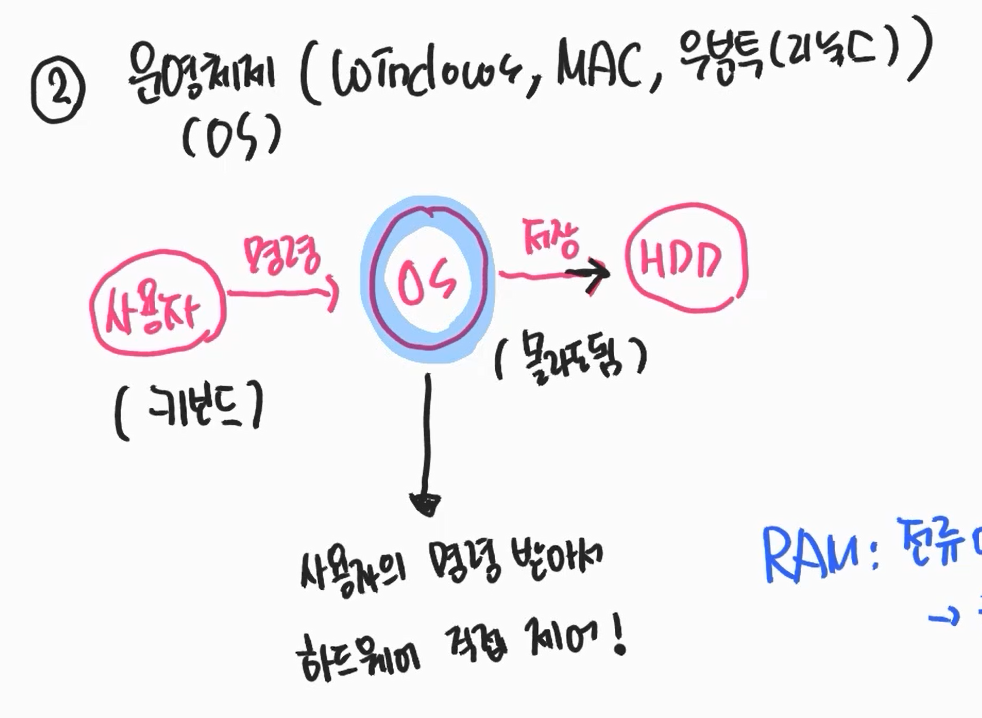 ② 운영체제 (Windows, MAC, 우분투(리눅스))
(OS)
명령
저장
사용자
OS
HDD
(키보드)
(몰라도됨)
사용자의 명령 받아서
하드웨어 직접 제어!
RAM: 전류
→